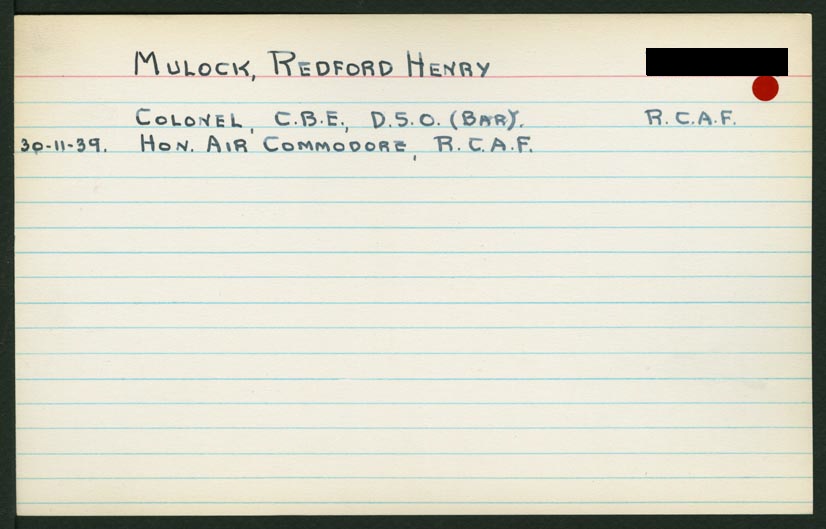 MULOCK, REDFORD HENRY
COLONEL, C.B.E., D.S.O. (BAR). R.C.A.F.
30-11-39. HON. AIR COMMODORE, R.C.A.F.